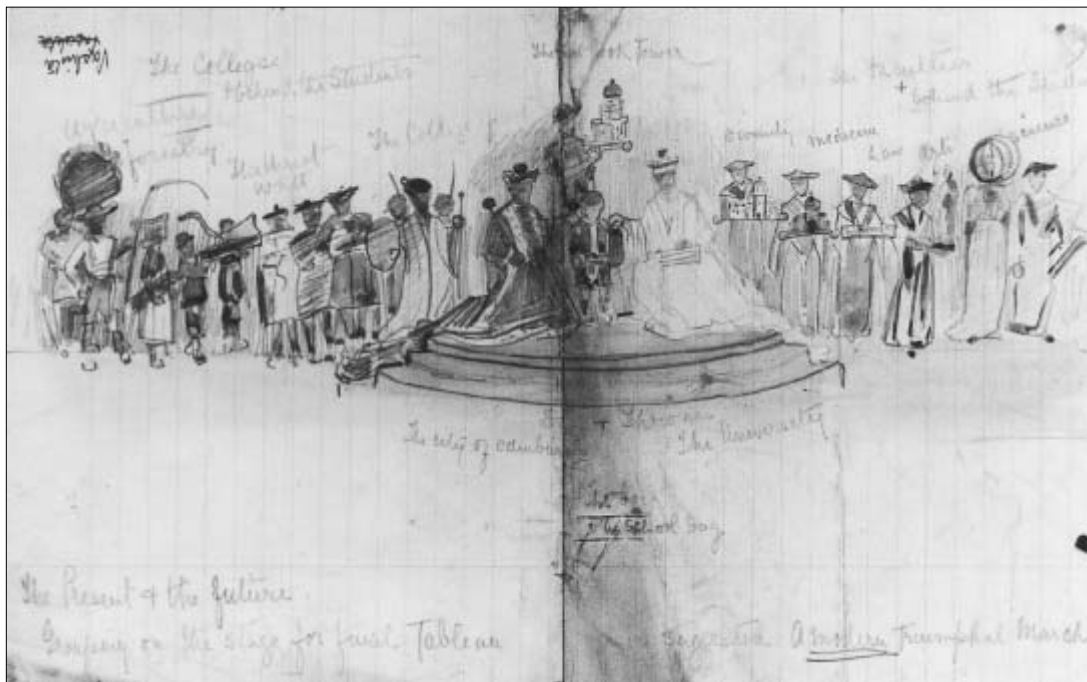 The Colleges
behind the Students
Agriculture
forestry
The Colleges
The Outlook Tower
The Faculties
+ behind the Students
Divinity
medicine
Law
Arts
Science
The City of Edinburgh
+ Throne
The University
School bag
The Present & the future.
Grouping on the stage for final Tableau
suggested A modern Triumphal March